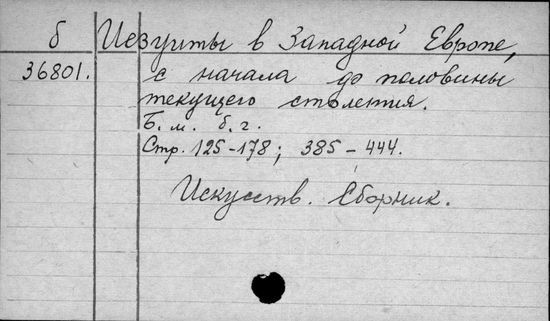 б Иезуиты в Западной Европе,
36801. с начала до половины
текущего столетия.
Б. м. б. г.
Стр. 125-178; 385-444.
Искусств. Сборник.